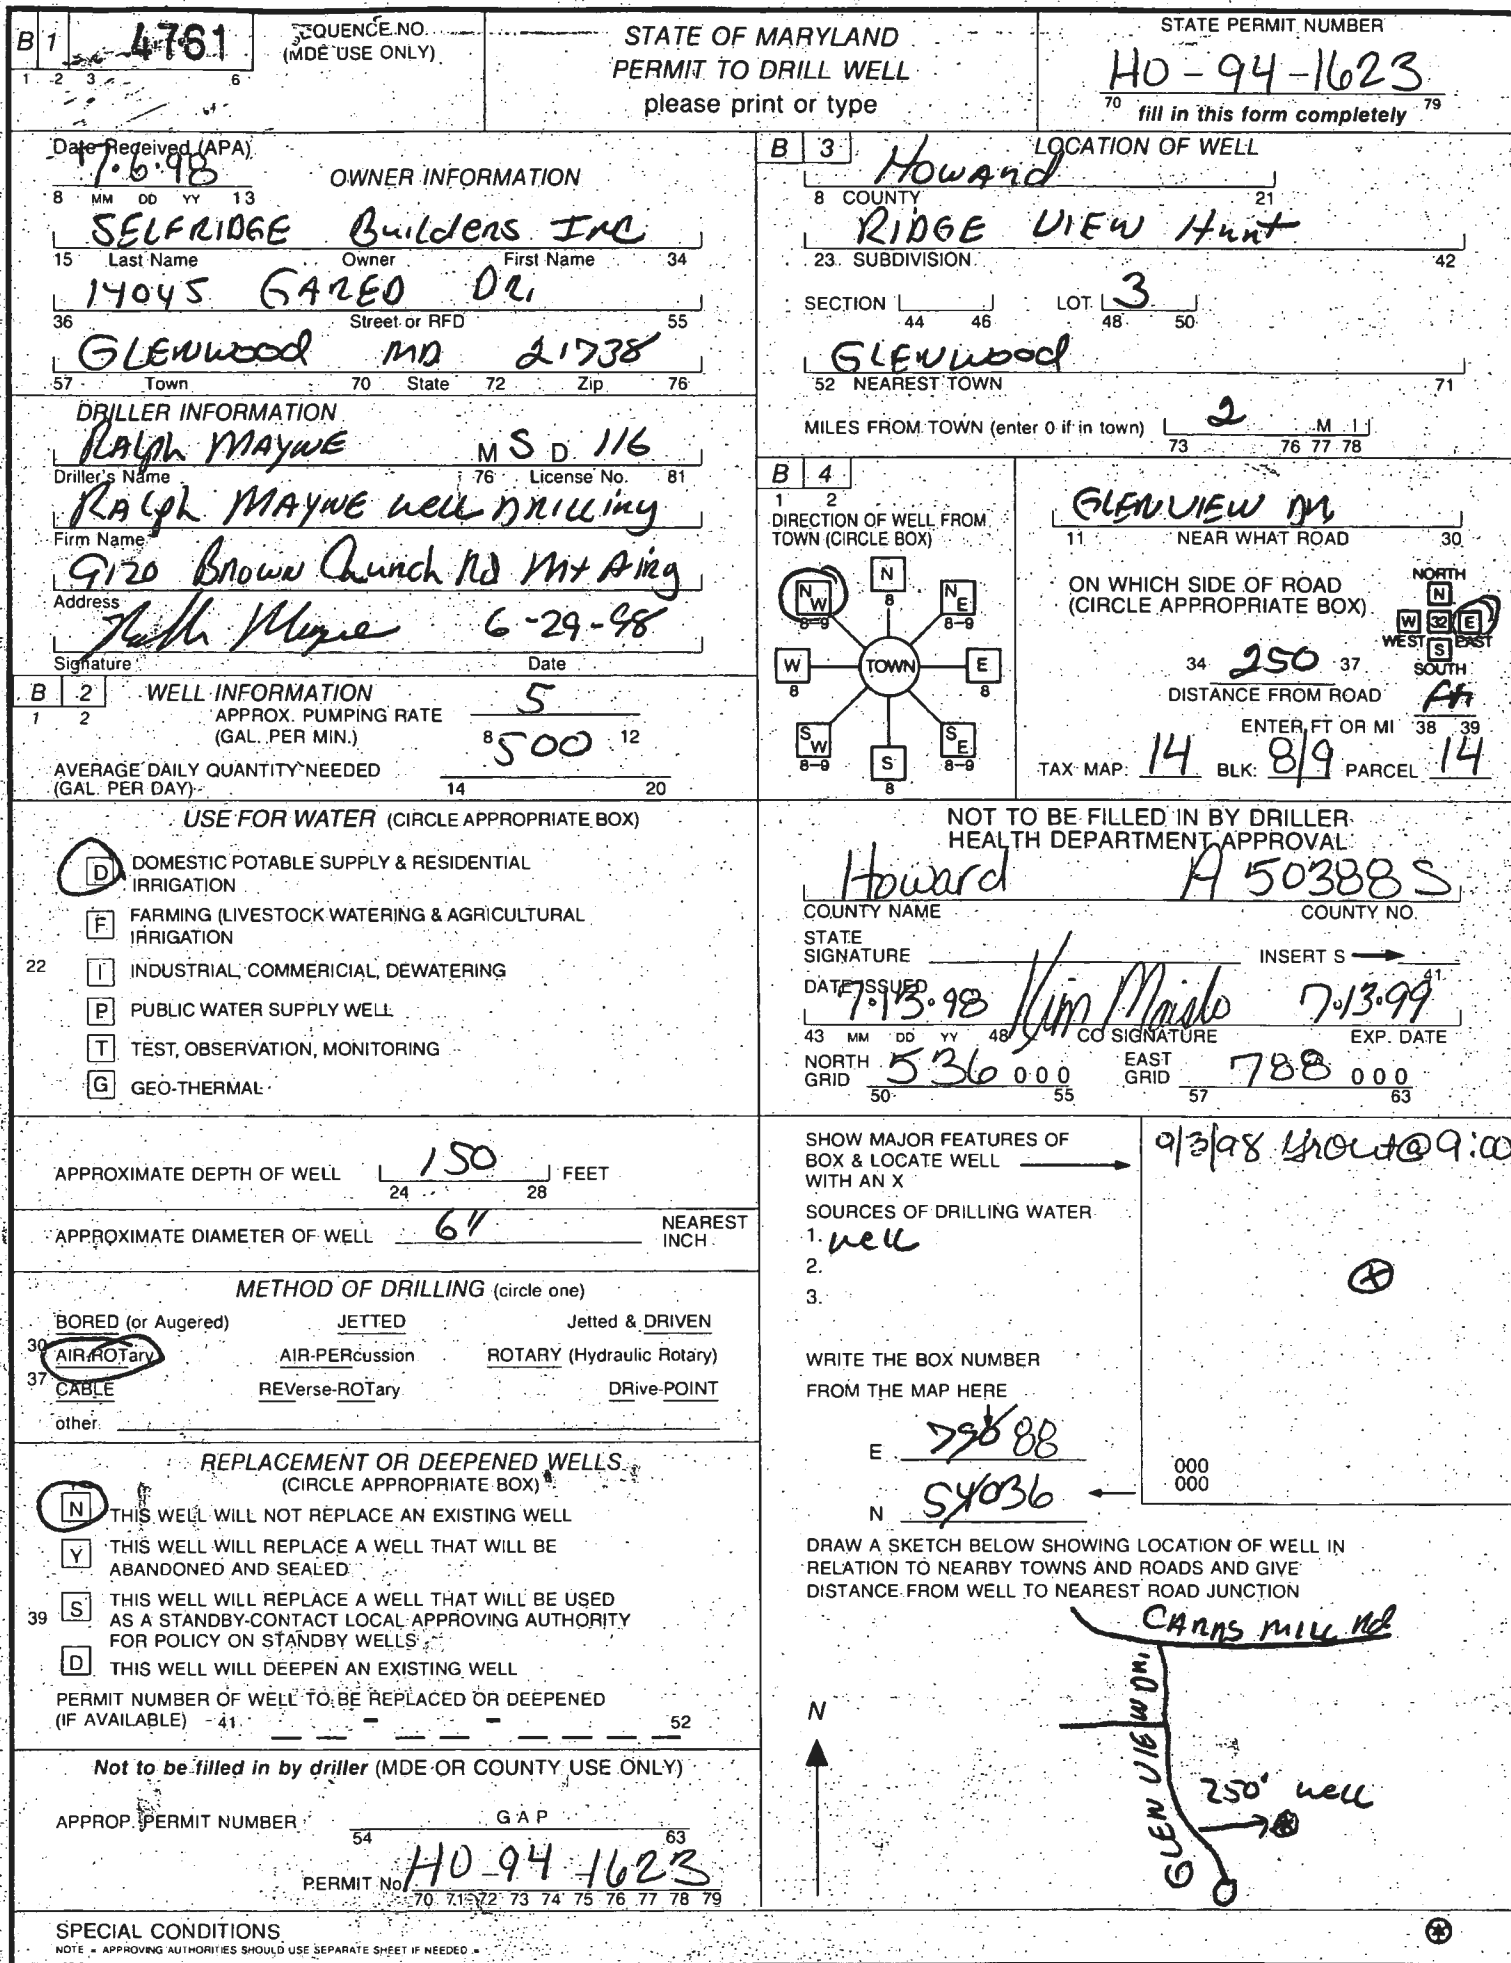 B 1 4761 SEQUENCE NO. (MDE USE ONLY)
1 2 3 6
STATE OF MARYLAND
PERMIT TO DRILL WELL
please print or type
STATE PERMIT NUMBER
HO-94-1623
70 79
fill in this form completely
Date Received (APA)
7.6.98
8 MM DD YY 13
OWNER INFORMATION
SELFRIDGE Builders Inc
15 Last Name Owner First Name 34
14045 GARED DR.
36 Street or RFD 55
GLENWOOD MD 21738
57 Town 70 State 72 Zip 76
DRILLER INFORMATION
RALPH MAYNE M S D 116
Driller's Name 76 License No. 81
RALPH MAYNE Well DRILLING
Firm Name
9120 Brown Church Rd Mt Airy
Address
Ralph Mayne 6-29-98
Signature Date
B 2 WELL INFORMATION
1 2
APPROX. PUMPING RATE
(GAL. PER MIN.) 5
8 12
AVERAGE DAILY QUANTITY NEEDED
(GAL. PER DAY) 500
14 20
USE FOR WATER (CIRCLE APPROPRIATE BOX)
D DOMESTIC POTABLE SUPPLY & RESIDENTIAL
IRRIGATION
F FARMING (LIVESTOCK WATERING & AGRICULTURAL
IRRIGATION
22 I INDUSTRIAL, COMMERICIAL, DEWATERING
P PUBLIC WATER SUPPLY WELL
T TEST, OBSERVATION, MONITORING
G GEO-THERMAL
APPROXIMATE DEPTH OF WELL 150 FEET
24 28
APPROXIMATE DIAMETER OF WELL 6" NEAREST
INCH
METHOD OF DRILLING (circle one)
BORED (or Augered) JETTED Jetted & DRIVEN
30 AIR-ROTary AIR-PERcussion ROTARY (Hydraulic Rotary)
37 CABLE REVerse-ROTary DRive-POINT
other
REPLACEMENT OR DEEPENED WELLS
(CIRCLE APPROPRIATE BOX)
N THIS WELL WILL NOT REPLACE AN EXISTING WELL
Y THIS WELL WILL REPLACE A WELL THAT WILL BE
ABANDONED AND SEALED
39 S THIS WELL WILL REPLACE A WELL THAT WILL BE USED
AS A STANDBY-CONTACT LOCAL APPROVING AUTHORITY
FOR POLICY ON STANDBY WELLS
D THIS WELL WILL DEEPEN AN EXISTING WELL
PERMIT NUMBER OF WELL TO BE REPLACED OR DEEPENED
(IF AVAILABLE) 41 - - 52
Not to be filled in by driller (MDE OR COUNTY USE ONLY)
APPROP. PERMIT NUMBER G A P
54 63
PERMIT No. HO-94-1623
70 71 72 73 74 75 76 77 78 79
SPECIAL CONDITIONS
NOTE = APPROVING AUTHORITIES SHOULD USE SEPARATE SHEET IF NEEDED =
B 3 LOCATION OF WELL
Howard
8 COUNTY 21
RIDGE VIEW Hunt
23 SUBDIVISION 42
SECTION LOT 3
44 46 48 50
GLENWOOD
52 NEAREST TOWN 71
MILES FROM TOWN (enter 0 if in town) 2 M I
73 76 77 78
B 4
1 2
DIRECTION OF WELL FROM
TOWN (CIRCLE BOX)
N 8
NW 8-9 NE 8-9
W 8 TOWN E 8
SW 8-9 SE 8-9
S 8
GLENVIEW DR
11 NEAR WHAT ROAD 30
ON WHICH SIDE OF ROAD
(CIRCLE APPROPRIATE BOX)
NORTH
N
W 32 E
WEST EAST
S
SOUTH
34 250 37
DISTANCE FROM ROAD
ENTER FT OR MI Ft
38 39
TAX MAP: 14 BLK: 8/9 PARCEL 14
NOT TO BE FILLED IN BY DRILLER
HEALTH DEPARTMENT APPROVAL
Howard A 50388 S
COUNTY NAME COUNTY NO.
STATE
SIGNATURE INSERT S
41
DATE ISSUED
7.13.98 Kim 7.13.99
43 MM DD YY 48 CO SIGNATURE EXP. DATE
NORTH
GRID 536 000 EAST
GRID 788 000
50 55 57 63
SHOW MAJOR FEATURES OF
BOX & LOCATE WELL
WITH AN X
9/3/98 Grout@9:00
SOURCES OF DRILLING WATER
1. well
2.
3.
X
WRITE THE BOX NUMBER
FROM THE MAP HERE
E 790 88
N 54036
000
000
DRAW A SKETCH BELOW SHOWING LOCATION OF WELL IN
RELATION TO NEARBY TOWNS AND ROADS AND GIVE
DISTANCE FROM WELL TO NEAREST ROAD JUNCTION
CARRS MILL Rd
N
GLEN VIEW DR.
250' well